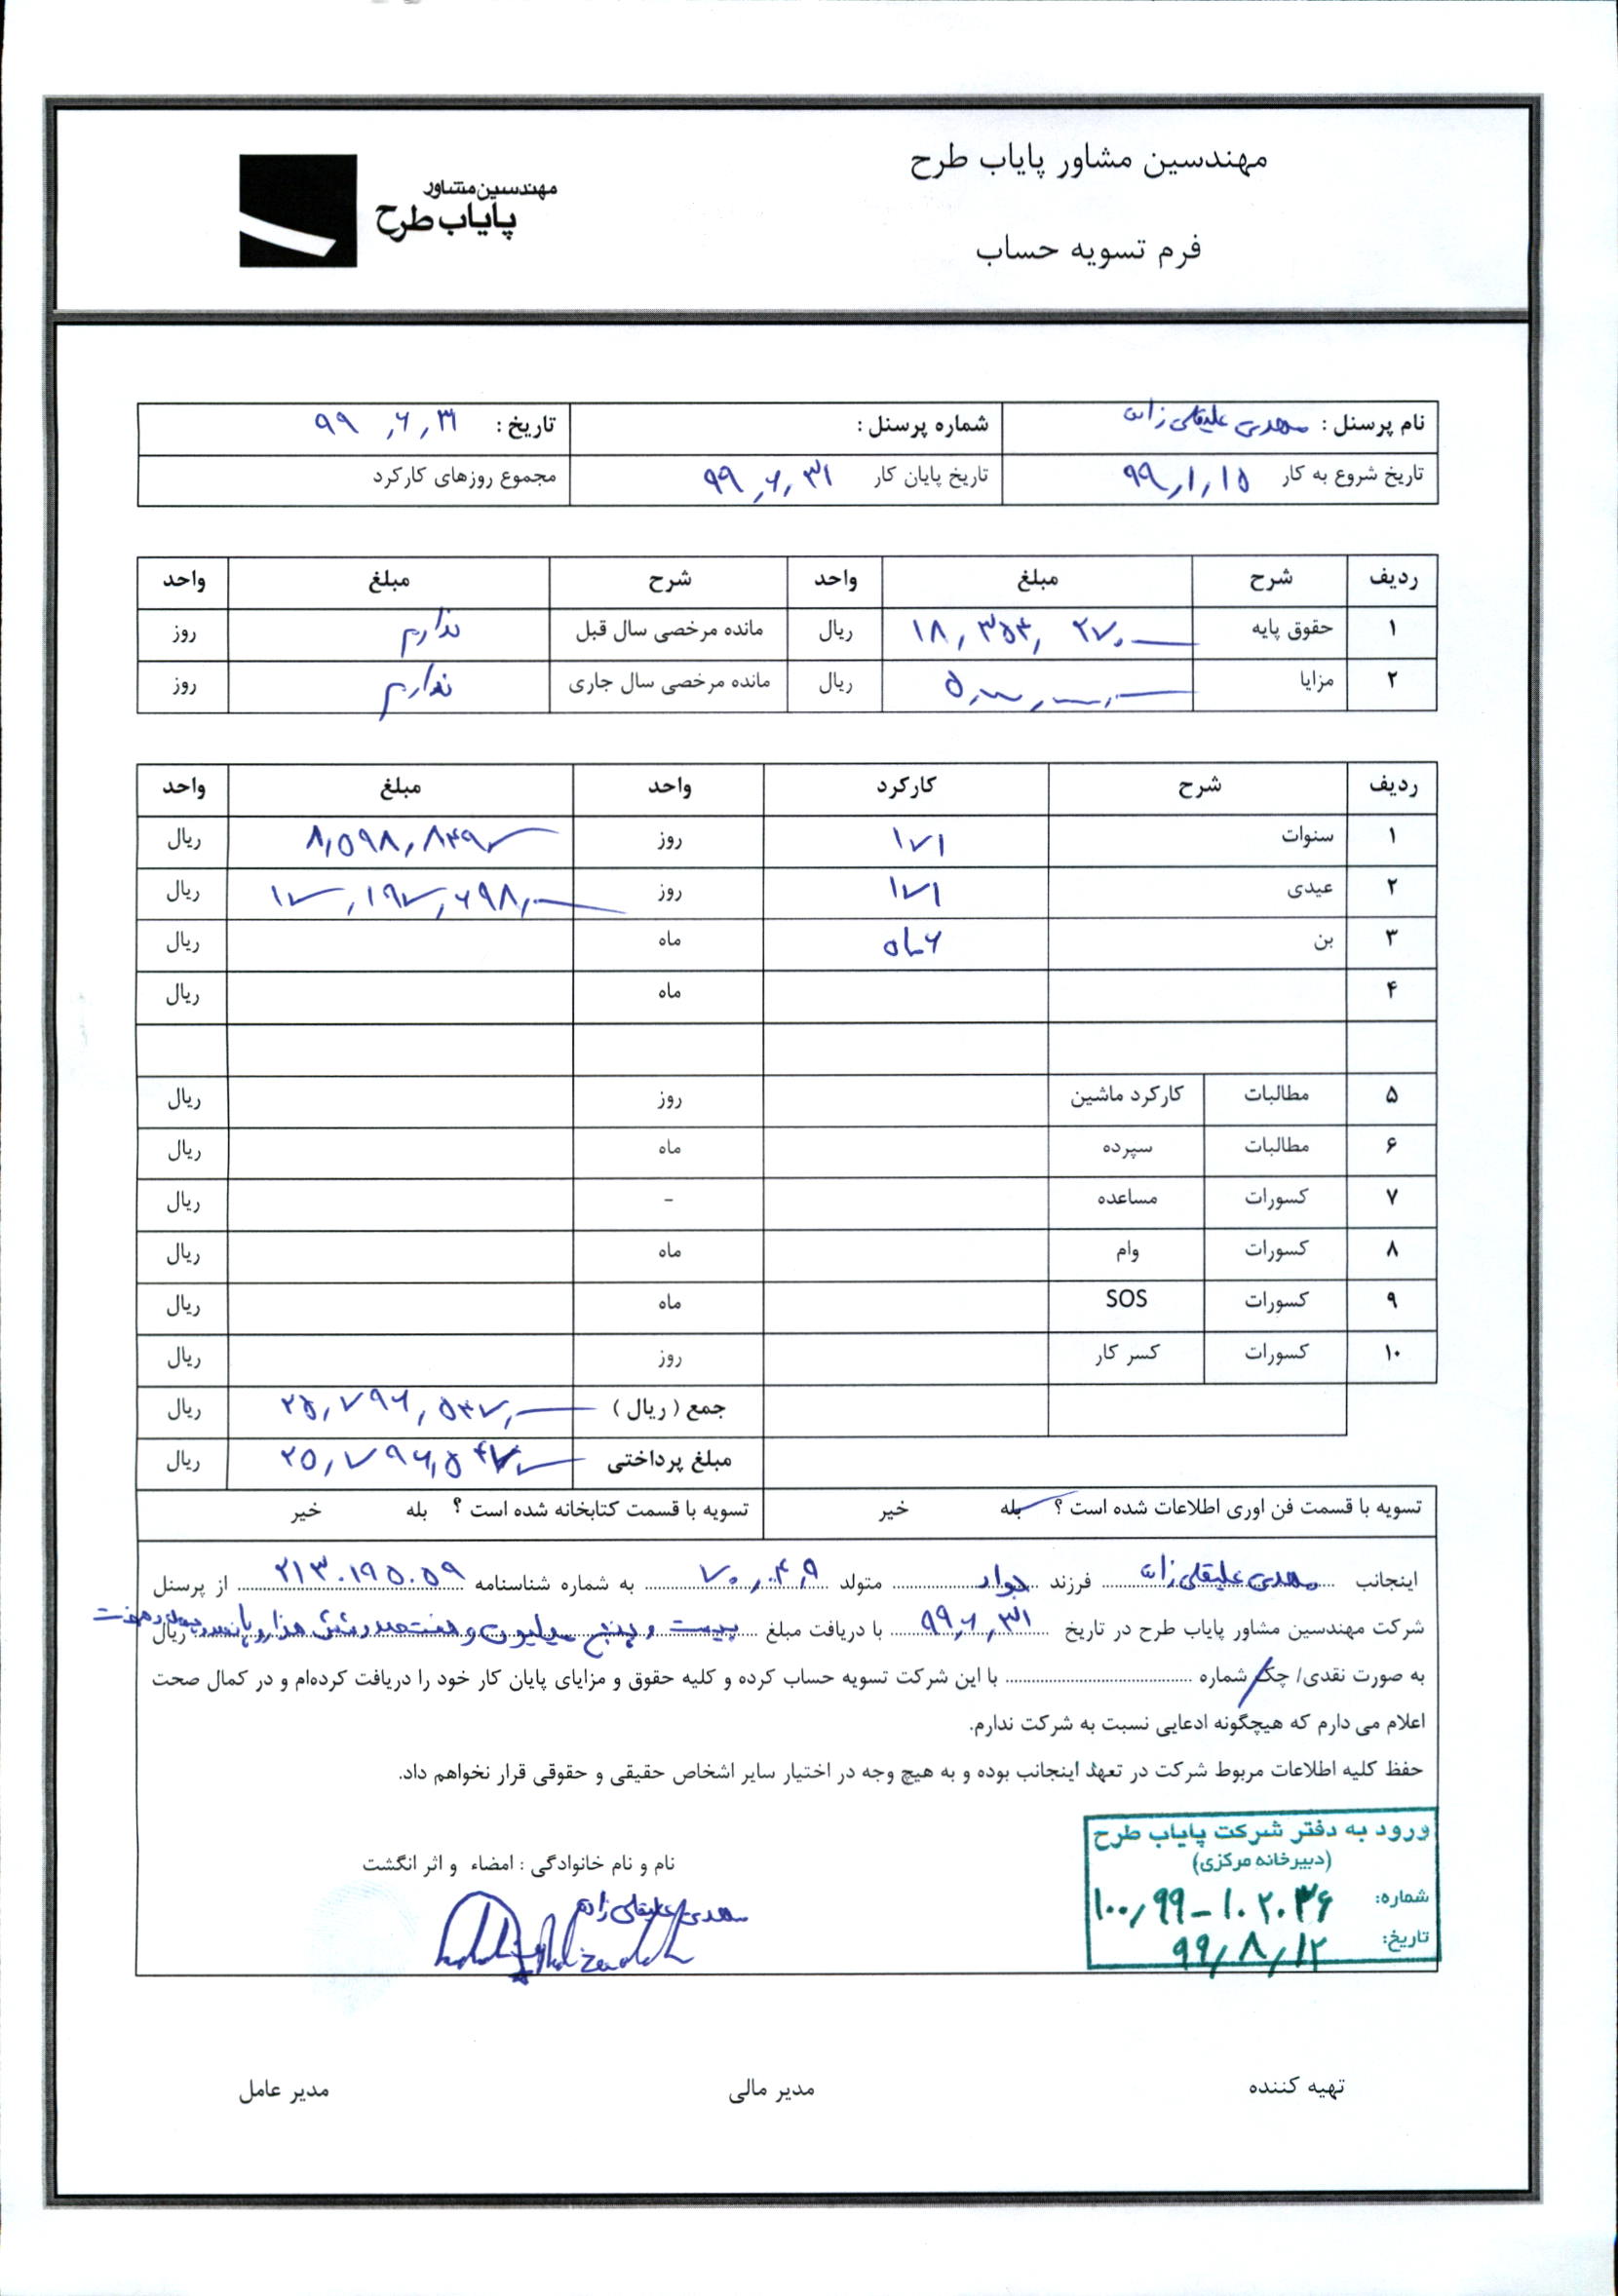 مهندسین مشاور پایاب طرح
مهندسین مشاور
پایاب طرح
فرم تسویه حساب
نام پرسنل : مهدی علیقلی زاده شماره پرسنل : تاریخ : ۹۹,۶,۳۱
تاریخ شروع به کار ۹۹,۱,۱۵ تاریخ پایان کار ۹۹,۶,۳۱ مجموع روزهای کارکرد
ردیف شرح مبلغ واحد شرح مبلغ واحد
۱ حقوق پایه ۱۸,۳۵۴,۲۷۰ ریال مانده مرخصی سال قبل ندارم روز
۲ مزایا ریال مانده مرخصی سال جاری ندارم روز
ردیف شرح کارکرد واحد مبلغ واحد
۱ سنوات ۱۷۱ روز ۸,۵۹۸,۸۴۹ ریال
۲ عیدی ۱۷۱ روز ۱۷,۱۹۷,۶۹۸ ریال
۳ بن ۶ ماه ماه ریال
۴ ماه ریال
۵ مطالبات کارکرد ماشین روز ریال
۶ مطالبات سپرده ماه ریال
۷ کسورات مساعده - ریال
۸ کسورات وام ماه ریال
۹ کسورات SOS ماه ریال
۱۰ کسورات کسر کار روز ریال
جمع ( ریال ) ۲۵,۷۹۶,۵۴۷ ریال
مبلغ پرداختی ۲۵,۷۹۶,۵۴۷ ریال
تسویه با قسمت فن اوری اطلاعات شده است ؟ بله خیر تسویه با قسمت کتابخانه شده است ؟ بله خیر
اینجانب مهدی علیقلی زاده فرزند جواد متولد ۷۰,۰۴,۹ به شماره شناسنامه ۲۱۳۰۱۹۵۰۵۹ از پرسنل
شرکت مهندسین مشاور پایاب طرح در تاریخ ۹۹,۶,۳۱ با دریافت مبلغ بیست و پنج میلیون و هفتصد و شش هزار و پانصد و چهل و هفت ریال
به صورت نقدی/ چک شماره با این شرکت تسویه حساب کرده و کلیه حقوق و مزایای پایان کار خود را دریافت کرده‌ام و در کمال صحت
اعلام می دارم که هیچگونه ادعایی نسبت به شرکت ندارم.
حفظ کلیه اطلاعات مربوط شرکت در تعهد اینجانب بوده و به هیچ وجه در اختیار سایر اشخاص حقیقی و حقوقی قرار نخواهم داد.
ورود به دفتر شرکت پایاب طرح
(دبیرخانه مرکزی)
شماره: ۱۰۰,۹۹-۱۰۲۰۳۶
تاریخ: ۹۹,۸,۱۲
نام و نام خانوادگی : امضاء و اثر انگشت
مهدی علیقلی زاده
تهیه کننده مدیر مالی مدیر عامل